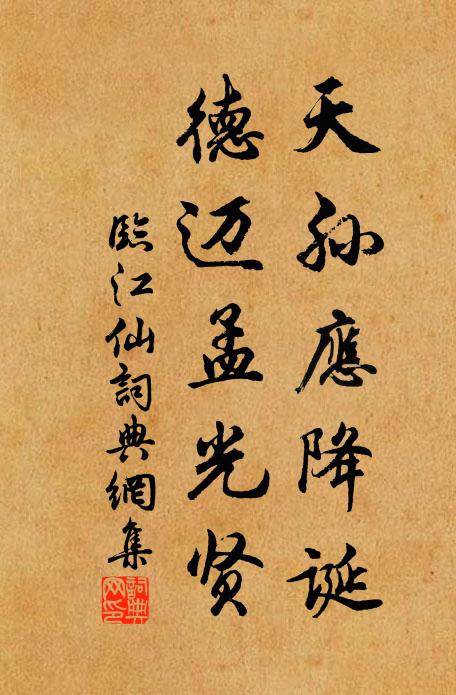 天孙應降诞
德迈孟光贤
臨江仙詞典網集
詞典网印